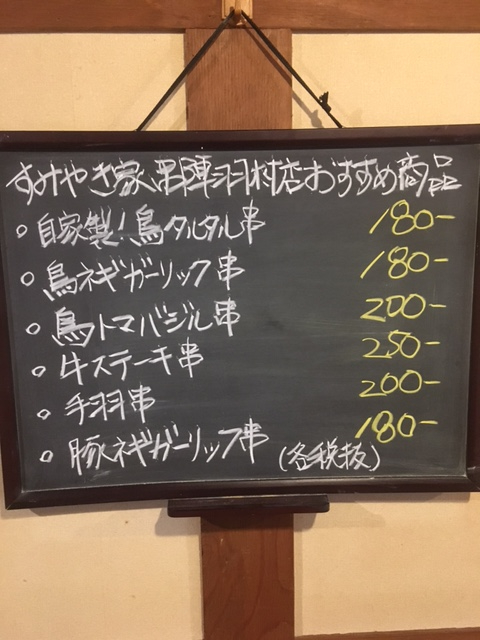 すみやき家串陣羽村店おすすめ商品
○自家製!鳥タルタル串 180-
○鳥ネギガーリック串 180-
○鳥トマバジル串 200-
○牛ステーキ串 250-
○手羽串 200-
○豚ネギガーリック串 180-
(各税抜)